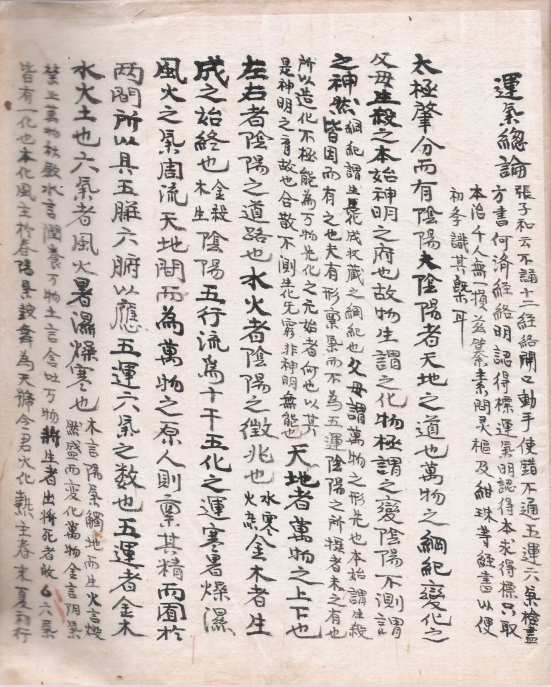 運氣總論
張子和云不誦十二經絡開口動手便錯不通五運六氣檢盡
方書何濟經絡明認得標運氣明認得本求得標只取
本治千人無一損茲纂素問灵樞及紺珠等經書以便
初学識其槩耳
太極肇分而有陰陽夫陰陽者天地之道也萬物之綱紀變化之
父母生殺之本始神明之府也故物生謂之化物極謂之變陰陽不測謂
之神然
綱紀謂生長成收藏之綱紀也父母謂萬物之形先也本始謂生殺
皆因而有之也夫有形禀氣而不為五運陰陽之所攝者未之有也
所以造化不極能為万物先化之元始者何也以其
是神明之育故也合散不測生化无窮非神明無能也
天地者萬物之上下也
左右者陰陽之道路也水火者陰陽之徵兆也水寒火熱金木者生
成之始終也金殺木生陰陽五行流為十干五化之運寒暑燥濕
風火之氣周流天地間而為萬物之原人則禀其精而囿於
两間所以具五臟六腑以應五運六氣之數也五運者金木
水火土也六氣者風火暑濕燥寒也
木言陽氣觸地而生火言燬
然盛而變化萬物金言阴氣
禁止萬物水言潤養万物土言含吐万物將生者出將死者 六氣
皆有一化也木化風主於春陽氣鼓舞為天號令君火化熱主春末夏初行